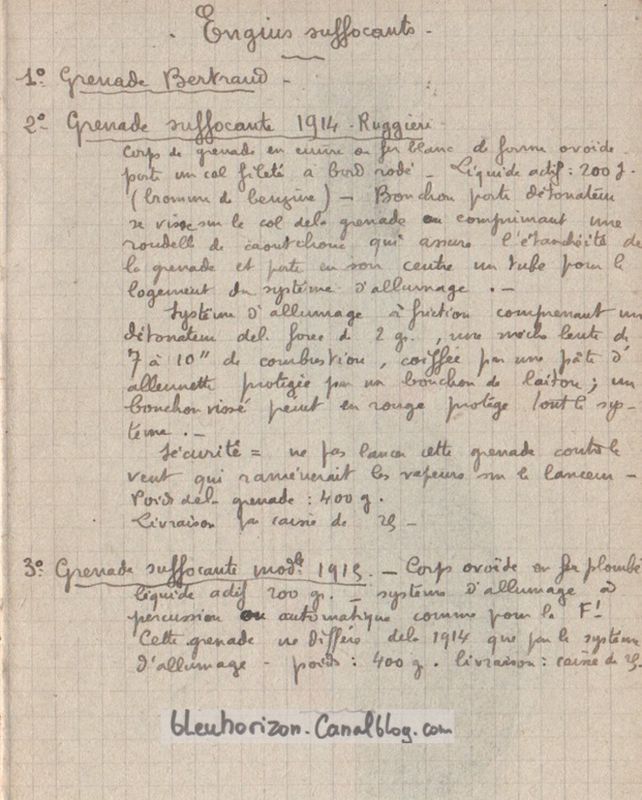 . Engins suffocants .
1° Grenade Bertrand -
2° Grenade suffocante 1914 - Ruggieri
Corps de grenade en cuivre ou fer blanc de forme ovoïde
porte un col fileté à bord rodé - Liquide actif : 200 g.
(bromure de benzine) - Bouchon porte détonateur
se visse sur le col de la grenade en comprimant une
rondelle de caoutchouc qui assure l'étanchéité de
la grenade et porte en son centre un tube pour le
logement du système d'allumage . -
Système d'allumage à friction comprenant un
détonateur del force de 2 gr., une mèche lente de
7 à 10" de combustion, coiffée par une pâte d'
allumette protégée par un bouchon de laiton ; un
bouchon vissé peint en rouge protège tout le sys-
tème . -
Sécurité = ne pas lancer cette grenade contre le
vent qui ramènerait les vapeurs sur le lanceur -
Poids de la grenade : 400 g.
Livraison par caisse de 25 -
3° Grenade suffocante modle 1915. - Corps ovoïde en fer plombé
liquide actif 200 gr. - système d'allumage à
percussion ou automatique comme pour la F1
Cette grenade ne diffère de la 1914 que par le système
d'allumage - poids : 400 g. livraison : caisse de 25.
bleuhorizon.Canalblog.com